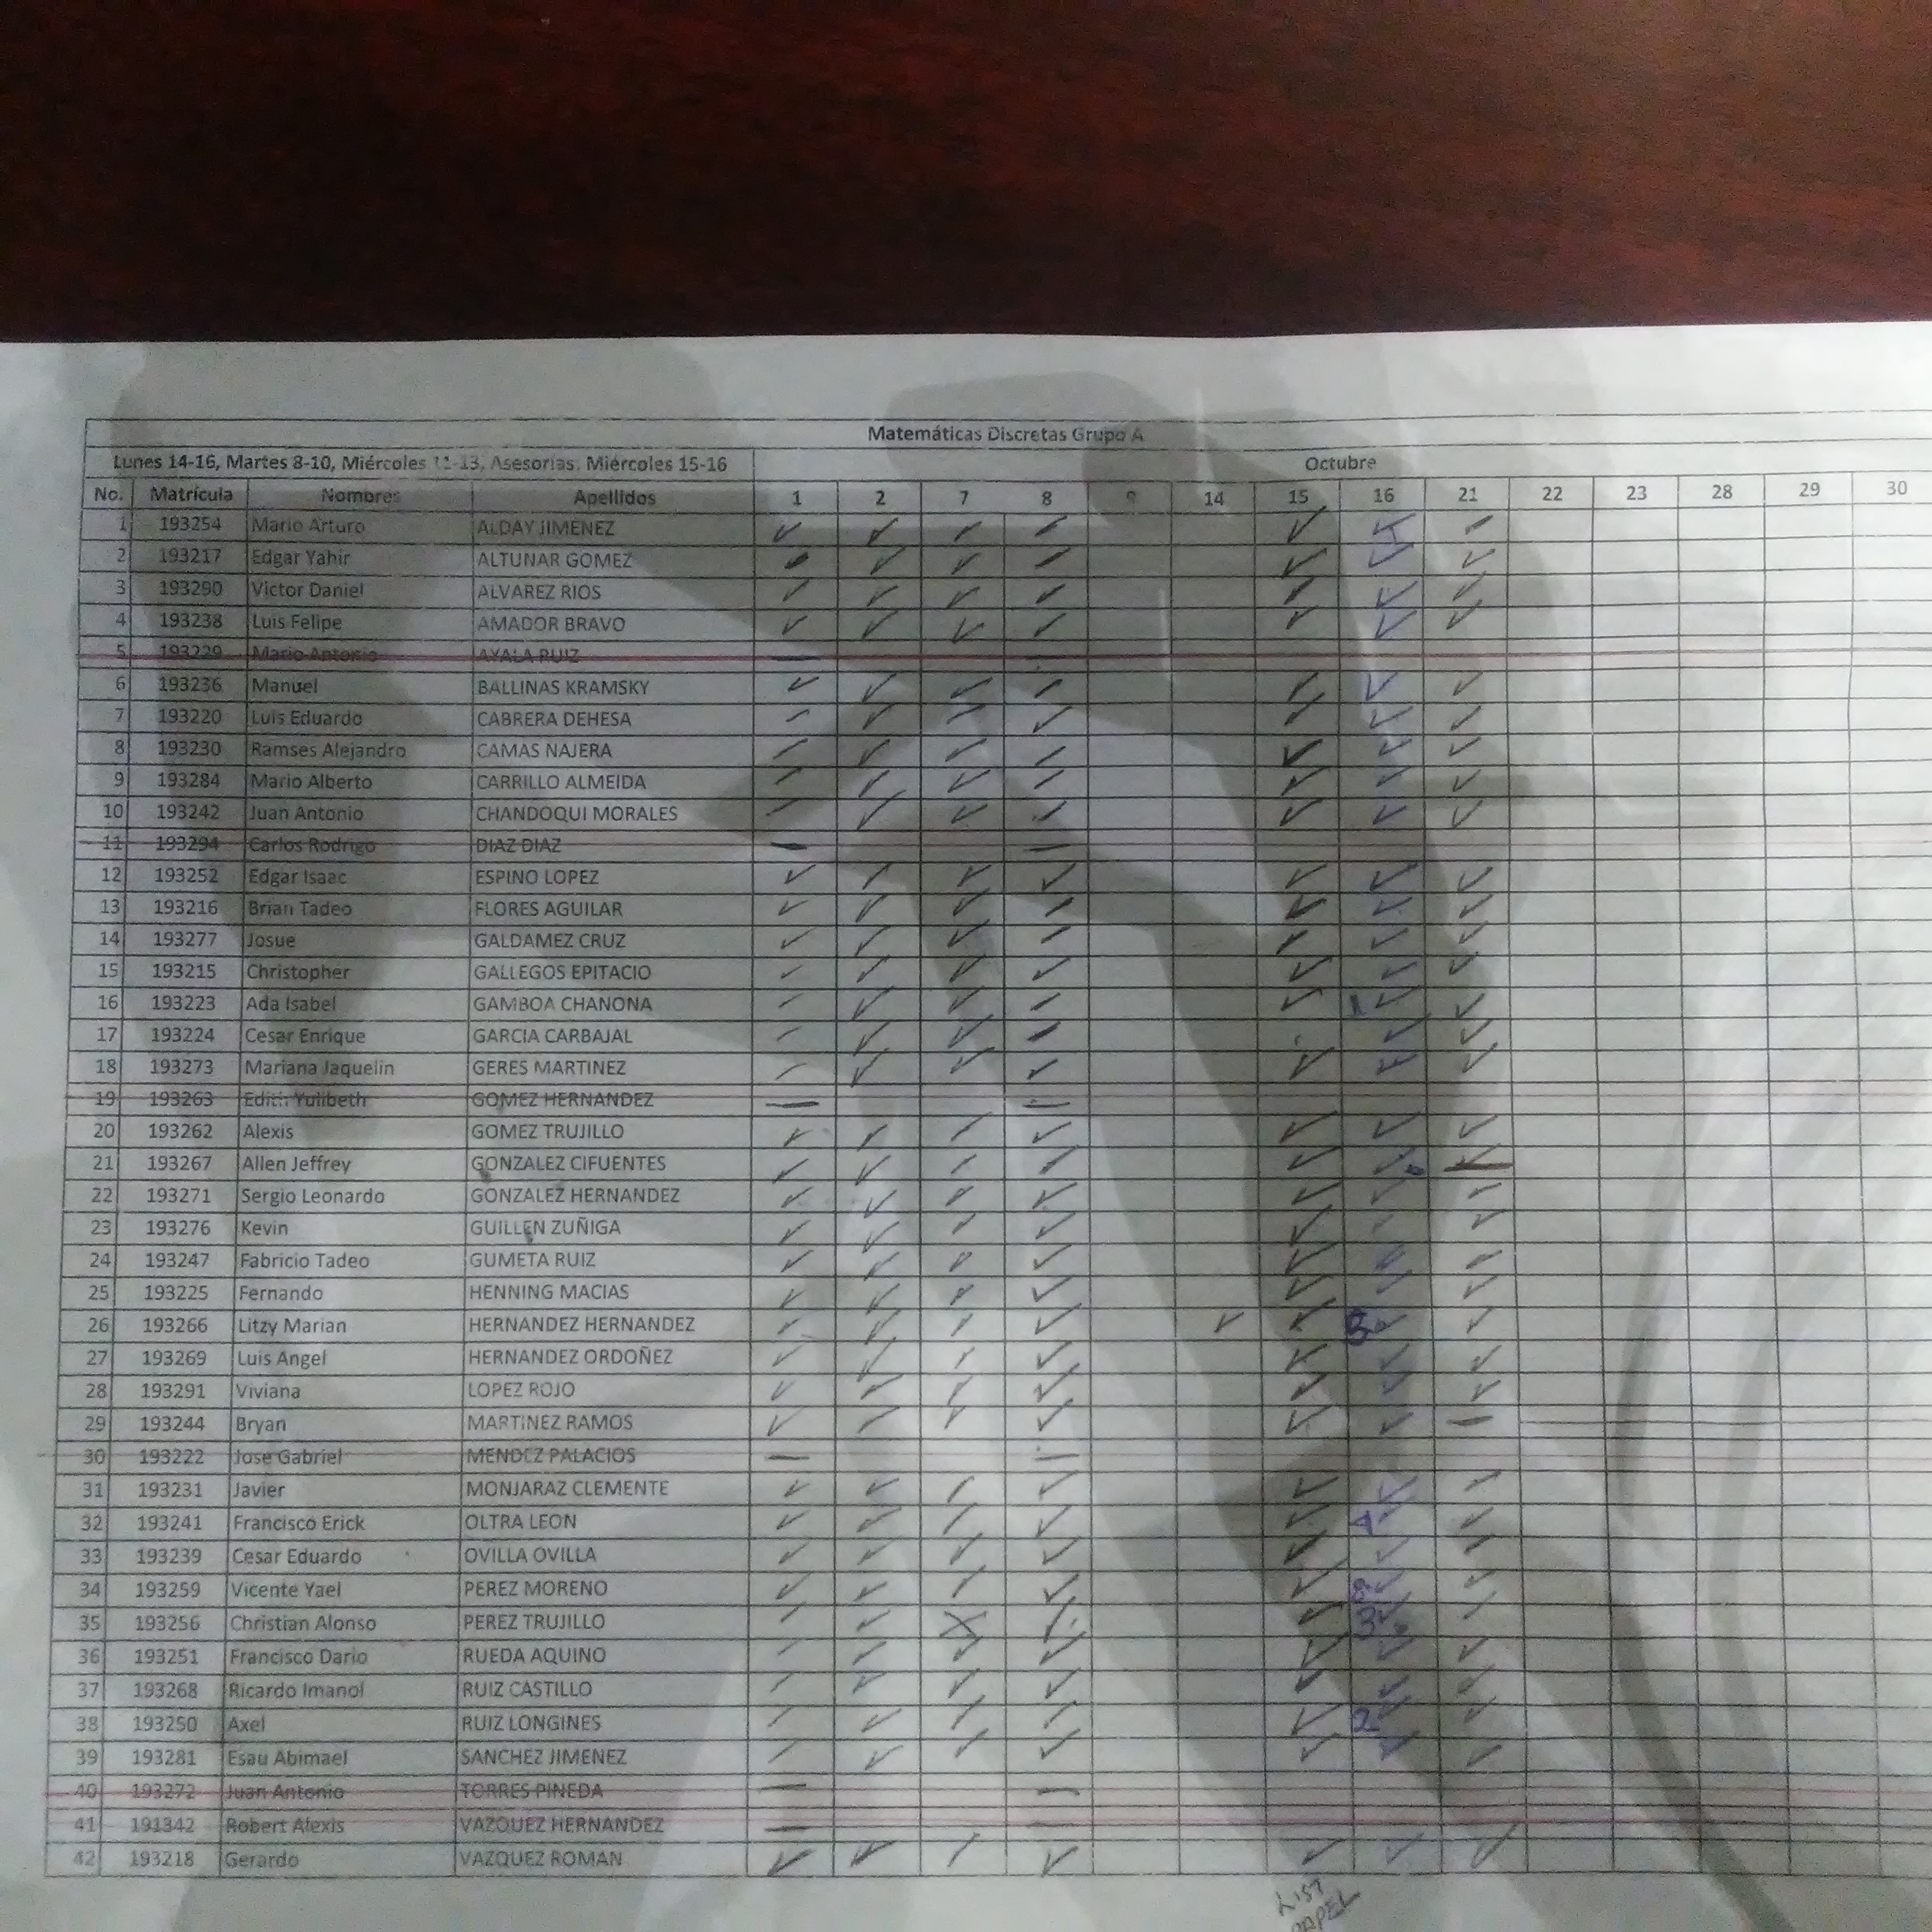 Matemáticas Discretas Grupo A
Lunes 14-16, Martes 8-10, Miércoles 11-13, Asesorías, Miércoles 15-16 Octubre
No. Matrícula Nombres Apellidos 1 2 7 8 9 14 15 16 21 22 23 28 29 30
1 193254 Mario Arturo ALDAY JIMENEZ
2 193217 Edgar Yahir ALTUNAR GOMEZ
3 193290 Victor Daniel ALVAREZ RIOS
4 193238 Luis Felipe AMADOR BRAVO
5 193229 Mario Antonio AYALA RUIZ
6 193236 Manuel BALLINAS KRAMSKY
7 193220 Luis Eduardo CABRERA DEHESA
8 193230 Ramses Alejandro CAMAS NAJERA
9 193284 Mario Alberto CARRILLO ALMEIDA
10 193242 Juan Antonio CHANDOQUI MORALES
11 193294 Carlos Rodrigo DIAZ DIAZ
12 193252 Edgar Isaac ESPINO LOPEZ
13 193216 Brian Tadeo FLORES AGUILAR
14 193277 Josue GALDAMEZ CRUZ
15 193215 Christopher GALLEGOS EPITACIO
16 193223 Ada Isabel GAMBOA CHANONA 1
17 193224 Cesar Enrique GARCIA CARBAJAL
18 193273 Mariana Jaquelin GERES MARTINEZ
19 193263 Edith Yulibeth GOMEZ HERNANDEZ
20 193262 Alexis GOMEZ TRUJILLO
21 193267 Allen Jeffrey GONZALEZ CIFUENTES
22 193271 Sergio Leonardo GONZALEZ HERNANDEZ
23 193276 Kevin GUILLEN ZUÑIGA
24 193247 Fabricio Tadeo GUMETA RUIZ
25 193225 Fernando HENNING MACIAS
26 193266 Litzy Marian HERNANDEZ HERNANDEZ
27 193269 Luis Angel HERNANDEZ ORDOÑEZ
28 193291 Viviana LOPEZ ROJO
29 193244 Bryan MARTINEZ RAMOS
30 193222 Jose Gabriel MENDEZ PALACIOS
31 193231 Javier MONJARAZ CLEMENTE
32 193241 Francisco Erick OLTRA LEON 4
33 193239 Cesar Eduardo OVILLA OVILLA
34 193259 Vicente Yael PEREZ MORENO
35 193256 Christian Alonso PEREZ TRUJILLO 3
36 193251 Francisco Dario RUEDA AQUINO
37 193268 Ricardo Imanol RUIZ CASTILLO
38 193250 Axel RUIZ LONGINES 2
39 193281 Esau Abimael SANCHEZ JIMENEZ
40 193272 Juan Antonio TORRES PINEDA
41 191342 Robert Alexis VAZQUEZ HERNANDEZ
42 193218 Gerardo VAZQUEZ ROMAN